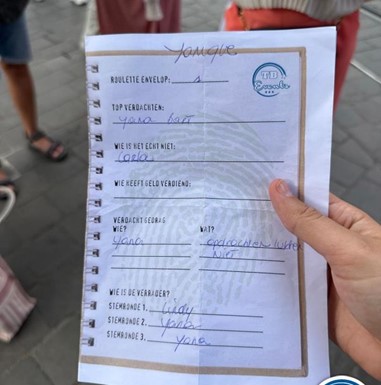 Yanique
ROULETTE ENVELOP: s
TB
Events
TOP VERDACHTEN:
Yana
WIE IS HET ECHT NIET:
Carla
WIE HEEFT GELD VERDIEND:
VERDACHT GEDRAG
WIE? WAT?
Yana opdrachten lukten
niet
WIE IS DE VERRADER?
STEMRONDE 1. Cindy
STEMRONDE 2. Yana
STEMRONDE 3. Yana